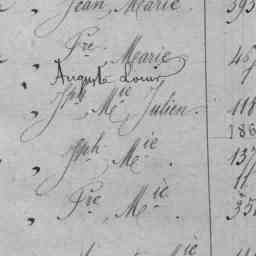 " Jean Marie. 593
" Fre Marie 45
Auguste Louis
" Jph Mie Julien. 118
186
" Jph Mie. 137
11
" Fre Mie. 35